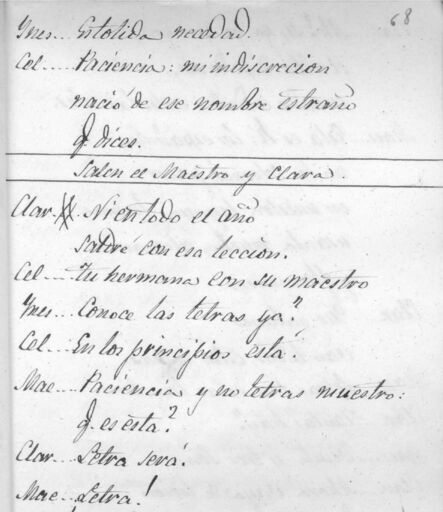 68
Ynes... Estolida necedad.
Cel.... Paciencia: mi indiscrecion
nació de ese nombre estraño
q. dices.
Salen el Maestro y Clara
Clar... Ni en todo el año
saldré con esa leccion.
Cel.... tu hermana con su maestro
Ynes... Conoce las letras ya?
Cel.... En los principios está.
Mae... Paciencia y no letras muestro:
q. es esta?
Clar... Letra será.
Mae... Letra!